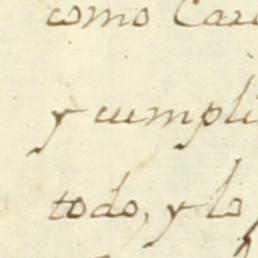 como Car
y cumpli
todo, y lo